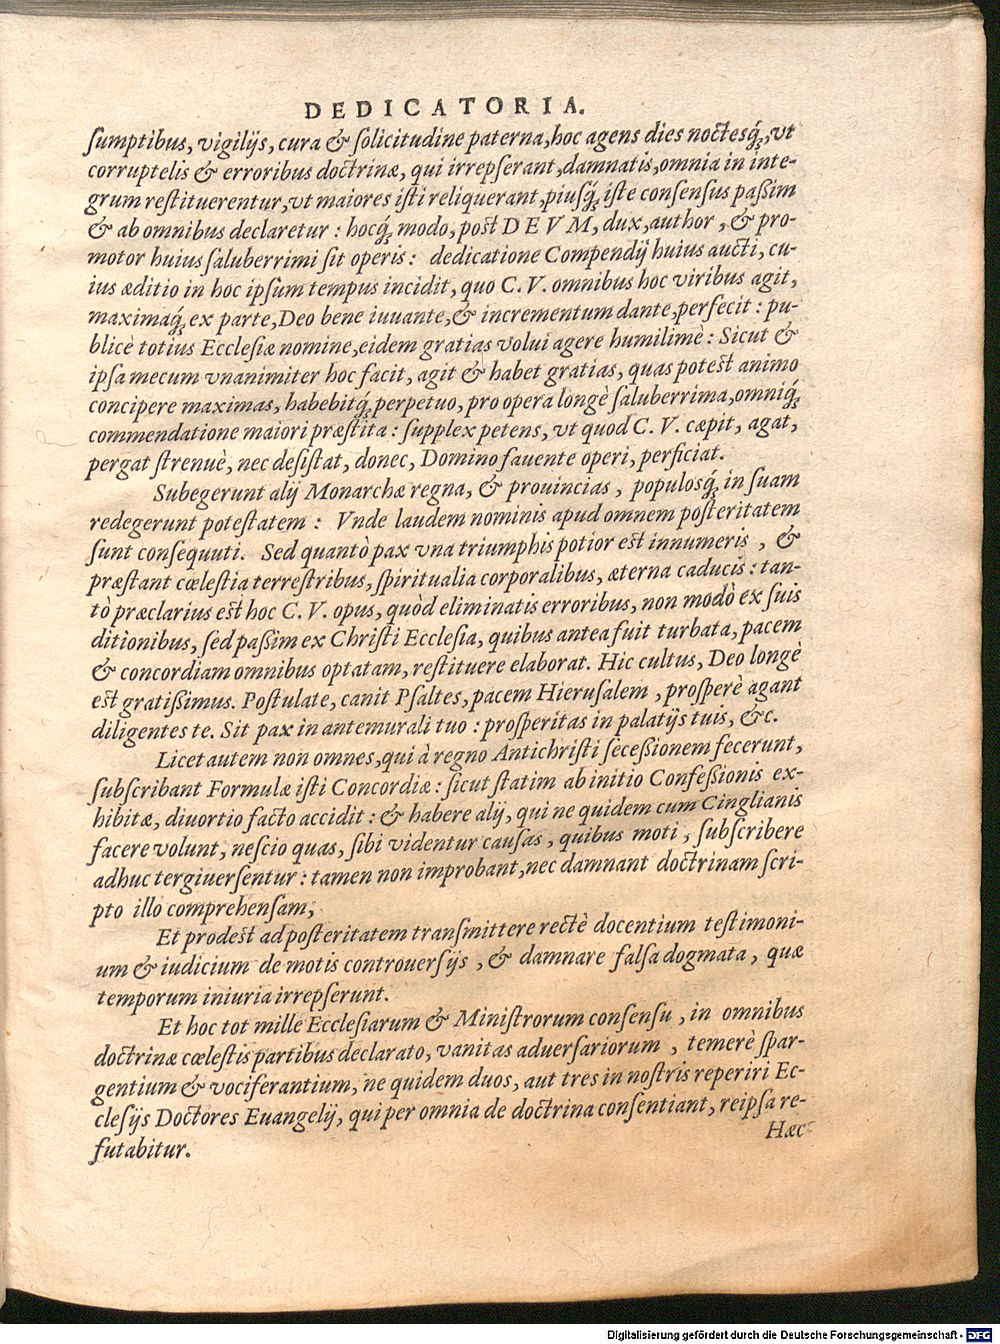 DEDICATORIA.
ſumptibus, vigilijs, cura & ſolicitudine paterna, hoc agens dies noctesq́;, vt
corruptelis & erroribus doctrinæ, qui irrepſerant, damnatis, omnia in inte-
grum reſtituerentur, vt maiores iſti reliquerant, piusq́; iſte conſenſus paßim
& ab omnibus declaretur : hocq́; modo, poſt DEVM, dux, author, & pro-
motor huius ſaluberrimi ſit operis : dedicatione Compendij huius aucti, cu-
ius æditio in hoc ipſum tempus incidit, quo C. V. omnibus hoc viribus agit,
maximaq́; ex parte, Deo bene iuuante, & incrementum dante, perfecit : pu-
blicè totius Eccleſiæ nomine, eidem gratias volui agere humilimè : Sicut &
ipſa mecum vnanimiter hoc facit, agit & habet gratias, quas poteſt animo
concipere maximas, habebitq́; perpetuo, pro opera longè ſaluberrima, omniq́;
commendatione maiori præſtita : ſupplex petens, vt quod C. V. cæpit, agat,
pergat ſtrenuè, nec deſiſtat, donec, Domino fauente operi, perficiat.
Subegerunt alij Monarchæ regna, & prouincias, populosq́; in ſuam
redegerunt poteſtatem : Vnde laudem nominis apud omnem poſteritatem
ſunt conſequuti. Sed quantò pax vna triumphis potior eſt innumeris, &
præſtant cœleſtia terreſtribus, ſpiritualia corporalibus, æterna caducis : tan-
tò præclarius eſt hoc C. V. opus, quòd eliminatis erroribus, non modò ex ſuis
ditionibus, ſed paßim ex Chriſti Eccleſia, quibus antea fuit turbata, pacem
& concordiam omnibus optatam, reſtituere elaborat. Hic cultus, Deo longè
eſt gratißimus. Poſtulate, canit Pſaltes, pacem Hieruſalem, proſperè agant
diligentes te. Sit pax in antemurali tuo : proſperitas in palatijs tuis, &c.
Licet autem non omnes, qui à regno Antichriſti ſeceßionem fecerunt,
ſubſcribant Formulæ iſti Concordiæ : ſicut ſtatim ab initio Confeßionis ex-
hibitæ, diuortio facto accidit : & habere alij, qui ne quidem cum Cinglianis
facere volunt, neſcio quas, ſibi videntur cauſas, quibus moti, ſubſcribere
adhuc tergiuerſentur : tamen non improbant, nec damnant doctrinam ſcri-
pto illo comprehenſam,
Et prodeſt ad poſteritatem tranſmittere rectè docentium teſtimoni-
um & iudicium de motis controuerſijs, & damnare falſa dogmata, quæ
temporum iniuria irrepſerunt.
Et hoc tot mille Eccleſiarum & Miniſtrorum conſenſu, in omnibus
doctrinæ cœleſtis partibus declarato, vanitas aduerſariorum, temerè ſpar-
gentium & vociferantium, ne quidem duos, aut tres in noſtris reperiri Ec-
cleſijs Doctores Euangelij, qui per omnia de doctrina conſentiant, reipſa re-
futabitur.
Hæc
Digitalisierung gefördert durch die Deutsche Forschungsgemeinschaft - DFG